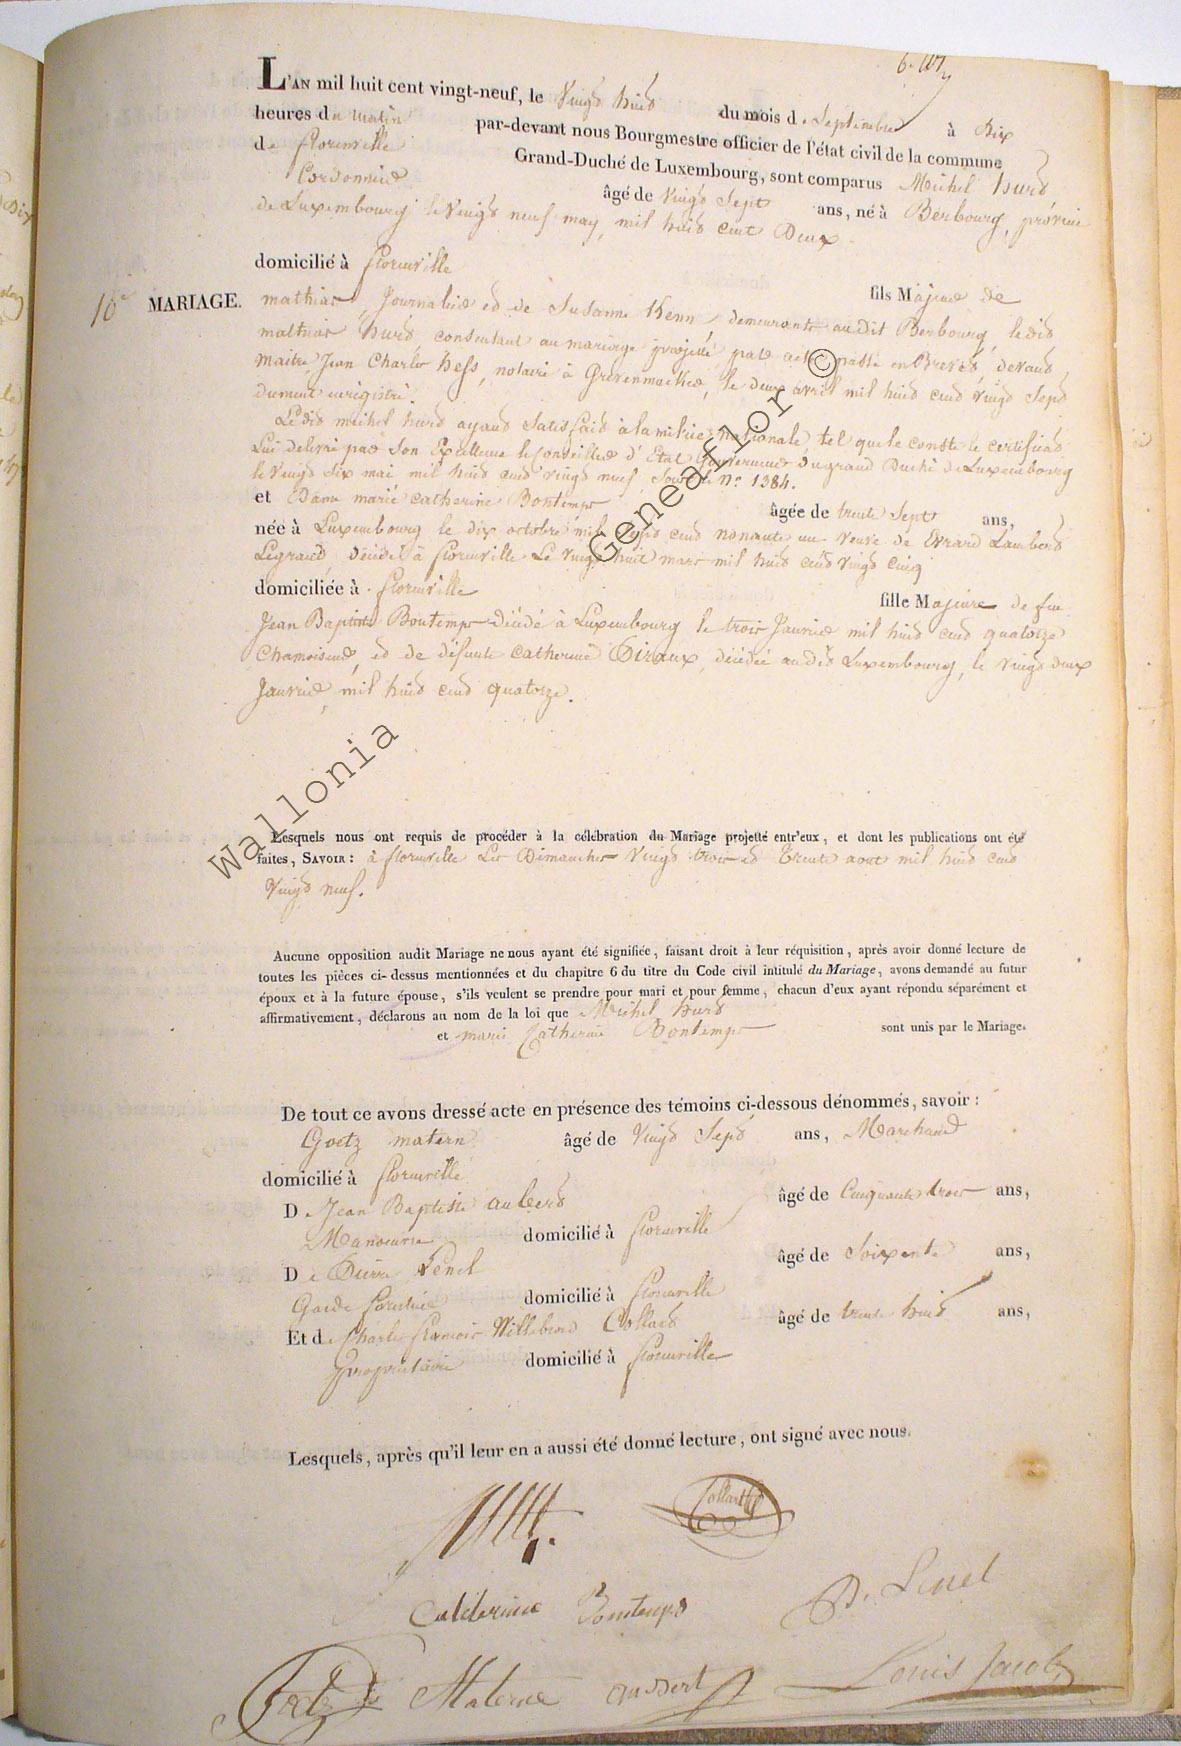 L'AN mil huit cent vingt-neuf, le Vingt huit du mois de Septembre à Dix
heures du matin par-devant nous Bourgmestre officier de l'état civil de la commune
de florenville Grand-Duché de Luxembourg, sont comparus Michel hurt
Cordonnier âgé de Vingt Sept ans, né à Berbourg, province
de Luxembourg le Vingt neuf may, mil huit cent Deux
domicilié à florenville
10e MARIAGE. fils Majeur de
mathias, Journalier et de Susanne Kenn, demeurants audit Berbourg, ledit
mathias hurt, consentant au mariage projetté par acte passé en Brevet, devant
maitre Jean Charles hess, notaire à Grevenmacher, le deux avril mil huit cent vingt Sept
dument enregistré.
Ledit michel hurt ayant Satisfait à la milice nationale, tel que le conste le certificat
Lui delivré par Son Excellence le Conseiller d'Etat Gouverneur du grand Duché de Luxembourg
le Vingt Six mai mil huit cent vingt neuf, Sous le No 1384.
et Dame marie catherine Bontemps âgée de trente Sept ans,
née à Luxembourg le dix octobre mil Sept cent nonante un veuve de Evrard Lambert
Legrand décédé à florenville Le Vingt huit mars mil huit cent vingt cinq
domiciliée à florenville fille Majeure de feu
Jean Baptiste Bontemps décédé à Luxembourg le trois Janvier mil huit cent quatorze
Chamoiseur, et de défunte Catherine Diraux, décédée audit Luxembourg, le Vingt deux
Janvier, mil huit cent quatorze.
Lesquels nous ont requis de procéder à la célébration du Mariage projetté entr'eux, et dont les publications ont été
faites, SAVOIR: à florenville Les Dimanches Vingt trois et Trente aout mil huit cent
Vingt neuf.
Aucune opposition audit Mariage ne nous ayant été signifiée, faisant droit à leur réquisition, après avoir donné lecture de
toutes les pièces ci-dessus mentionnées et du chapitre 6 du titre du Code civil intitulé du Mariage, avons demandé au futur
époux et à la future épouse, s'ils veulent se prendre pour mari et pour femme, chacun d'eux ayant répondu séparément et
affirmativement, déclarons au nom de la loi que Michel hurt
et marie Catherine Bontemps sont unis par le Mariage.
De tout ce avons dressé acte en présence des témoins ci-dessous dénommés, savoir:
Goetz matern âgé de Vingt Sept ans, Marchand
domicilié à florenville
De Jean Baptiste aubert âgé de Cinquante trois ans,
Manoeuvre domicilié à florenville
De Pierre Lenel âgé de Soixante ans,
Garde forestier domicilié à florenville
Et de Charles francois Willebrord Collard âgé de trente huit ans,
proprietaire domicilié à florenville
Lesquels, après qu'il leur en a aussi été donné lecture, ont signé avec nous.
Catherine Bontemps
P. Lenel
Goetz Materne
aubert
Louis Jacob
Wallonia Geneaflor ©